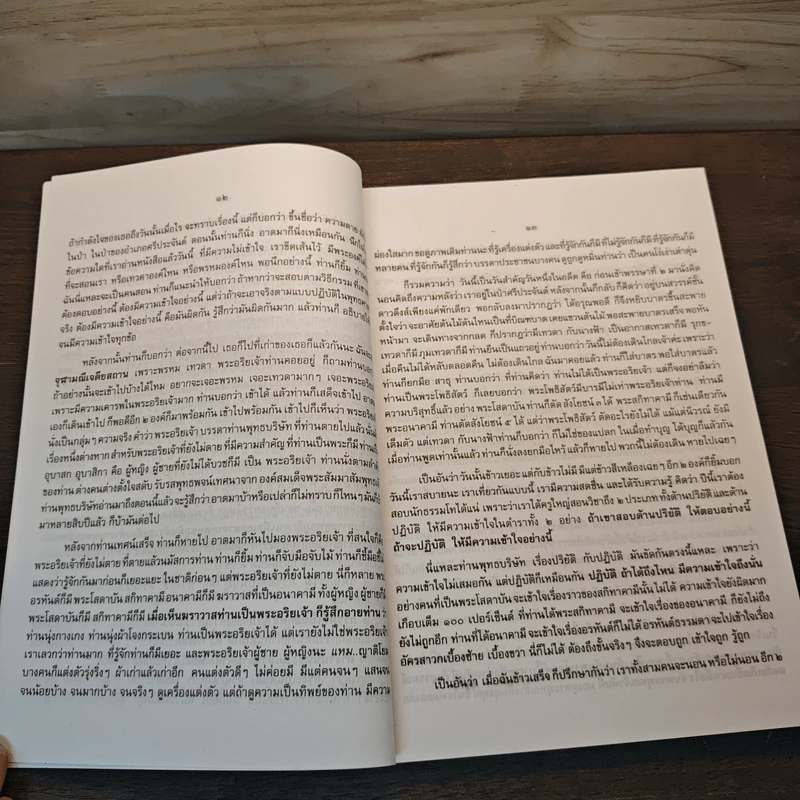 ๑๒
อ้ากำลังใจของเธอถึงวันนั้นเมื่อไร จะทราบเรื่องนี้ แต่ก็บอกว่า ขึ้นชื่อว่า ความตาย
ในป่า ในป่าของอำเภอศรีประจันต์ ตอนนั้นท่านก็นิ่ง อาตมาก็นิ่งเหมือนกัน นึกใน
ข้อความใดที่เราอ่านหนังสือแล้ววันนี้ ที่มีความไม่เข้าใจ เราขีดเส้นไว้ มีพระองค์ไหน
ที่จะสอนเรา หรือเทวดาองค์ไหน หรือพรหมองค์ไหน พอนึกอย่างนี้ ท่านก็ยิ้ม
ฉันนี่แหละจะเป็นคนสอน ท่านก็แนะนำให้บอกว่า ถ้าหากว่าจะสอบตามวิธีกรรม ที่
ต้องตอบอย่างนี้ ต้องมีความเข้าใจอย่างนี้ แต่ว่าถ้าจะเอาจริงตามแบบปฏิบัติในพุทธ
จริง ต้องมีความเข้าใจอย่างนี้ คือมันผิดกัน รู้สึกว่ามันผิดกันมาก แล้วท่านก็ อธิบาย
จนมีความเข้าใจทุกข้อ
หลังจากนั้นท่านก็บอกว่า ต่อจากนี้ไป เธอก็ไปที่เก่าของเธอก็แล้วกันนะ ฉันจะ
จุฬามณีเจดียสถาน เพราะพรหม เทวดา พระอริยเจ้าท่านคอยอยู่ ก็ถามท่านบอก
ถ้าอย่างนั้นจะเข้าไปบ้างได้ไหม อยากจะเจอะพรหม เจอะเทวดามากๆ เจอะพระอริย
เพราะมีความเคารพในพระอริยเจ้ามาก ท่านบอกว่า เข้าได้ แล้วท่านก็เสด็จเข้าไป
เองก็เดินเข้าไป ก็พอดีอีก ๒ องค์ก็มาพร้อมกัน เข้าไปพร้อมกัน เข้าไปก็เห็นว่า พระอริย
นั่งเป็นกลุ่มๆ ความจริง คำว่า พระอริยเจ้า บรรดาท่านพุทธบริษัท ที่ท่านตายไปแล้ว
เรื่องหนึ่งต่างหาก สำหรับพระอริยเจ้าที่ยังไม่ตาย ที่มีความสำคัญ ที่ท่านเป็นพระก็มี
อุบาสก อุบาสิกา คือ ผู้หญิง ผู้ชายที่ยังไม่ได้บวชก็มี เป็น พระอริยเจ้า ท่านนั่งตาม
ของท่าน ต่างคนต่างตั้งใจสดับ รับรสพุทธพจน์เทศนาจาก องค์สมเด็จพระสัมมาสัม
ท่านพุทธบริษัทอ่านมาถึงตอนนี้แล้วจะรู้สึกว่า อาตมาบ้าหรือเปล่าก็ไม่ทราบ ก็ไหนๆ
มาหลายสิบปีแล้ว ก็บ้ามันต่อไป
หลังจากท่านเทศน์เสร็จ ท่านก็หายไป อาตมาก็หันไปมองพระอริยเจ้า ที่สนใจ
พระอริยเจ้าที่ยังไม่ตาย ที่ตายแล้วนมัสการท่าน ท่านก็ยิ้ม ท่านก็จับมือจับไม้ ท่านก็
แสดงว่ารู้จักกันมาก่อนก็เยอะแยะ ในชาติก่อนๆ แต่พระอริยเจ้าที่ยังไม่ตาย นี่ก็หลาย
อรหันต์ก็มี พระโสดาบัน สกิทาคามี อนาคามีก็มี ฆราวาสที่เป็นอนาคามี ทั้งผู้หญิง ผู้ชาย
สกิทาคามีก็มี เมื่อเห็นฆราวาสท่านเป็นพระอริยเจ้า ก็รู้สึกอายท่าน
ท่านนุ่งกางเกง ท่านนุ่งผ้าโจงกระเบน ท่านเป็นพระอริยเจ้าได้ แต่เรายังไม่ใช่พระอริย
เราเลวกว่าท่านมาก ที่รู้จักท่านก็มีเยอะ และพระอริยเจ้าผู้ชาย ผู้หญิงนะ แหม..ญาติโยม
บางคนก็แต่งตัวรุ่งริ่งๆ ผ้าเก่าแล้วเก่าอีก คนแต่งตัวดีๆ ไม่ค่อยมี มีแต่คนจนๆ แสนจน
จนน้อยบ้าง จนมากบ้าง จนจริงๆ ดูเครื่องแต่งตัว แต่ถ้าดูความเป็นทิพย์ของท่าน มีความ
๑๓
ผ่องใสมาก ขอดูภาพเดิมท่านนะ ที่รู้เครื่องแต่งตัว และที่รู้จักกันก็มี ที่ไม่รู้จักกันก็มี ที่รู้จักกันก็มี
หลายคน ที่รู้จักกันก็รู้สึกว่า บรรดาประชาชนบางคน ดูถูกดูหมิ่นท่านว่า เป็นคนโง่เง่าเต่าตุ่น
ก็รวมความว่า วันนี้เป็นวันสำคัญวันหนึ่งในอดีต คือ ก่อนเข้าพรรษาที่ ๒ มานั่งคิด
นอนคิดถึงความหลังว่า เราอยู่ในป่าศรีประจันต์ หลังจากนั้นก็กลับ ก็คิดว่า อยู่บนสวรรค์ชั้น
ดาวดึงส์เพียงแค่พักเดียว พอกลับลงมาปรากฏว่า ได้อรุณพอดี ก็จึงหยิบบาตรขึ้นสะพาย
ตั้งใจว่า จะอาศัยต้นไม้ต้นไหนเป็นที่บิณฑบาต เคยแขวนต้นไม้ พอสะพายบาตรเสร็จ พอหัน
หน้ามา จะเดินทางจากกลด ก็ปรากฏว่ามีเทวดา กับนางฟ้า เป็นอากาศเทวดาก็มี รุกข-
เทวดาก็มี ภุมเทวดาก็มี ท่านยืนเป็นแถวอยู่ ท่านบอกว่า วันนี้ไม่ต้องเดินไกลเจ้าค่ะ เพราะว่า
เมื่อคืนไม่ได้หลับตลอดคืน ไม่ต้องเดินไกล ฉันมาคอยแล้ว ท่านก็ใส่บาตร พอใส่บาตรแล้ว
ท่านก็ยกมือ สาธุ ท่านบอกว่า ที่ท่านคิดว่า ท่านไม่ได้เป็นพระอริยเจ้า แต่ก็จงอย่าลืมว่า
ท่านเป็นพระโพธิสัตว์ ก็เลยบอกว่า พระโพธิสัตว์มีบารมีไม่เท่าพระอริยเจ้าท่าน ท่านมี
ความบริสุทธิ์แล้ว อย่าง พระโสดาบัน ท่านก็ตัด สังโยชน์ ๓ ได้ พระสกิทาคามี ก็เช่นเดียวกัน
พระอนาคามี ก็ท่านตัดสังโยชน์ ๕ ได้ แต่ว่าพระโพธิสัตว์ ตัดอะไรยังไม่ได้ แม้แต่นิวรณ์ ยังมี
เต็มตัว แต่เทวดา กับนางฟ้าท่านก็บอกว่า ก็ไม่ใช่ของแปลก ในเมื่อทำบุญ ได้บุญก็แล้วกัน
เมื่อท่านพูดเท่านั้นแล้ว ท่านก็นั่งลงยกมือไหว้ แล้วก็หายไป พวกนี้ไม่ต้องเดิน หายไปเฉยๆ
เป็นอันว่า วันนั้นข้าวเยอะแต่กับข้าวไม่มี มีแต่ข้าวสีเหลืองเฉยๆ อีก ๒ องค์ก็ยิ้มบอก
วันนี้เราสบายนะ เราเที่ยวกันแบบนี้ เรามีความสดชื่น และได้รับความรู้ คิดว่า ปีนี้เราต้อง
สอบนักธรรมโทได้แน่ เพราะว่าเราได้ครูใหญ่สอนวิชาถึง ๒ ประเภท ทั้งด้านปริยัติ และด้าน
ปฏิบัติ ให้มีความเข้าใจในตำราทั้ง ๒ อย่าง ถ้าเขาสอบด้านปริยัติ ให้ตอบอย่างนี้
ถ้าจะปฏิบัติ ให้มีความเข้าใจอย่างนี้
นี่แหละท่านพุทธบริษัท เรื่องปริยัติ กับปฏิบัติ มันขัดกันตรงนี้แหละ เพราะว่า
ความเข้าใจไม่เสมอกัน แต่ปฏิบัติก็เหมือนกัน ปฏิบัติ ถ้าได้ถึงไหน มีความเข้าใจถึงนั่น
อย่างคนที่เป็นพระโสดาบัน จะเข้าใจเรื่องราวของสกิทาคามีนั้นไม่ได้ ความเข้าใจยังผิดมาก
เกือบเต็ม ๑๐๐ เปอร์เซ็นต์ ที่ท่านได้พระสกิทาคามี จะเข้าใจเรื่องของอนาคามี ก็ยังไม่ถึง
ยังไม่ถูกอีก ท่านที่ได้อนาคามี จะเข้าใจเรื่องอรหันต์ก็ไม่ได้ อรหันต์ธรรมดา จะไปเข้าใจเรื่อง
อัครสาวกเบื้องซ้าย เบื้องขวา นี่ก็ไม่ได้ ต้องถึงขั้นจริงๆ จึงจะตอบถูก เข้าใจถูก รู้ถูก
เป็นอันว่า เมื่อฉันข้าวเสร็จ ก็ปรึกษากันว่า เราทั้งสามคนจะนอน หรือไม่นอน อีก ๒